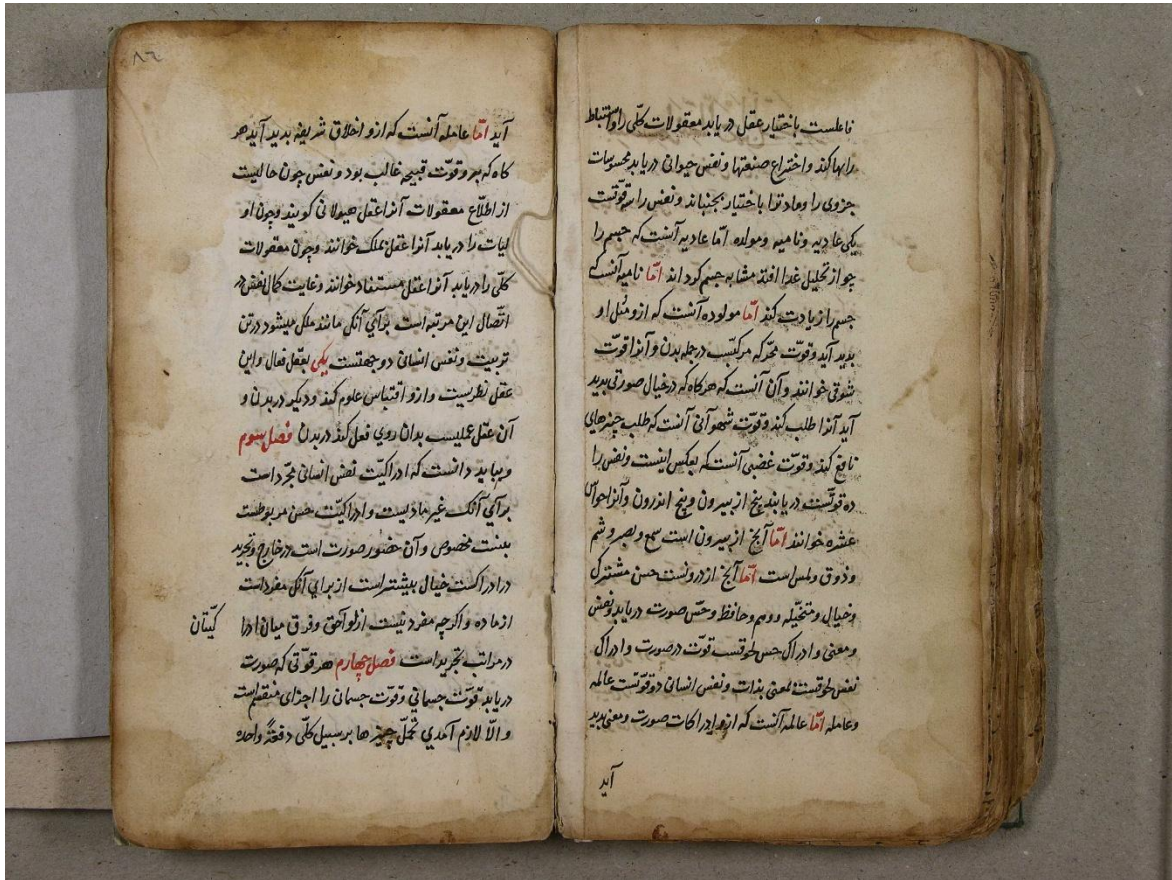 فاعلست باختیار عقل دریابد معقولات کلّی را و استنباط
رایها کند و اختراع صنعتها و نفس حیوانی دریابد محسوسات
جزوی را و عادتوا باختیار بجنباند و نفس را سه قوّتست
یکی عادیه و نامیه و مولده امّا عادیه آنست که جسم را
چو از تحلیل غذا افتد مشابه جسم کرداند امّا نامیه آنست که
جسم را زیادت کند امّا مولوده آنست که ازو مثل او
بدید آید و قوّت محرّکه مرکبّست در جمله بدن و آنرا قوّت
شوقی خوانند و آن آنست که هر کاه که در خیال صورتی بدید
آید آنرا طلب کند و قوّت شهوانی آنست که طلب چیزهای
نافع کند و قوّت غضبی آنست که بعکس اینست و نفس را
ده قوتّست دریابند پنج از بیرون و پنج اندرون و آنرا حواسّ
عشره خوانند امّا آنج از بیرون است سمع و بصر و شم
و ذوق و لمس است امّا آنج از درونست حسن مشترک
و خیال و متخیّله و وهم و حافظ و حسّ صورت دریابد و نفس
و معنی و ادراک حس لحوقست قوّت در صورت و ادراک
نفس لحوقست بمعنی بذات و نفس انسانی دو قوّتست عالمه
و عامله امّا عالمه آنست که ازو ادراکات صورت و معنی بدید
آید
۸۲
آید امّا عامله آنست که ازو اخلاق شریفه بدید آید هر
کاه که برو قوّت قبیحه غالب بود و نفس چون خالیست
از اطلّاع معقولات آنرا عقل هیولانی کویند و چون او
لیات را دریابد آنرا عقل بملک خوانند و چون معقولات
کلّی را دریابد آنرا عقل مستفاد خوانند و غایت کمال نفس در
اتّصال این مرتبه است برای آنکی مانند ملک میشود در تن
تربیت و نفس انسانی دو جهتست یکی بعقل فعال و این
عقل نظریست و ازو اقتباس علوم کند و دیکر در بدن و
آن عقل عملیست بدان روی فعل کند در بدن فصل سوم
و بباید دانست که ادراکیّت نفس انسانی مجرّد است
برای آنک غیر مادیست و ادراکیّت حسن مربوطست
بنسبت مخصوص و آن حضور صورت است در خارج و تجرید
در ادراکست خیال بیشتر است از برای آنکی مفرد است
از ماده و اکرچه مفرد نیست از لواحق و فرق میان ادرا
کیّتان
در مراتب تجرید است فصل چهارم هر قوّتی که صورت
دریابد قوّت جسمانی و قوّت جسمانی را اجزای منقسم است
و الّا لازم آمدی تخیّل چیزها بر سبیل کلّی دفعةً واحده